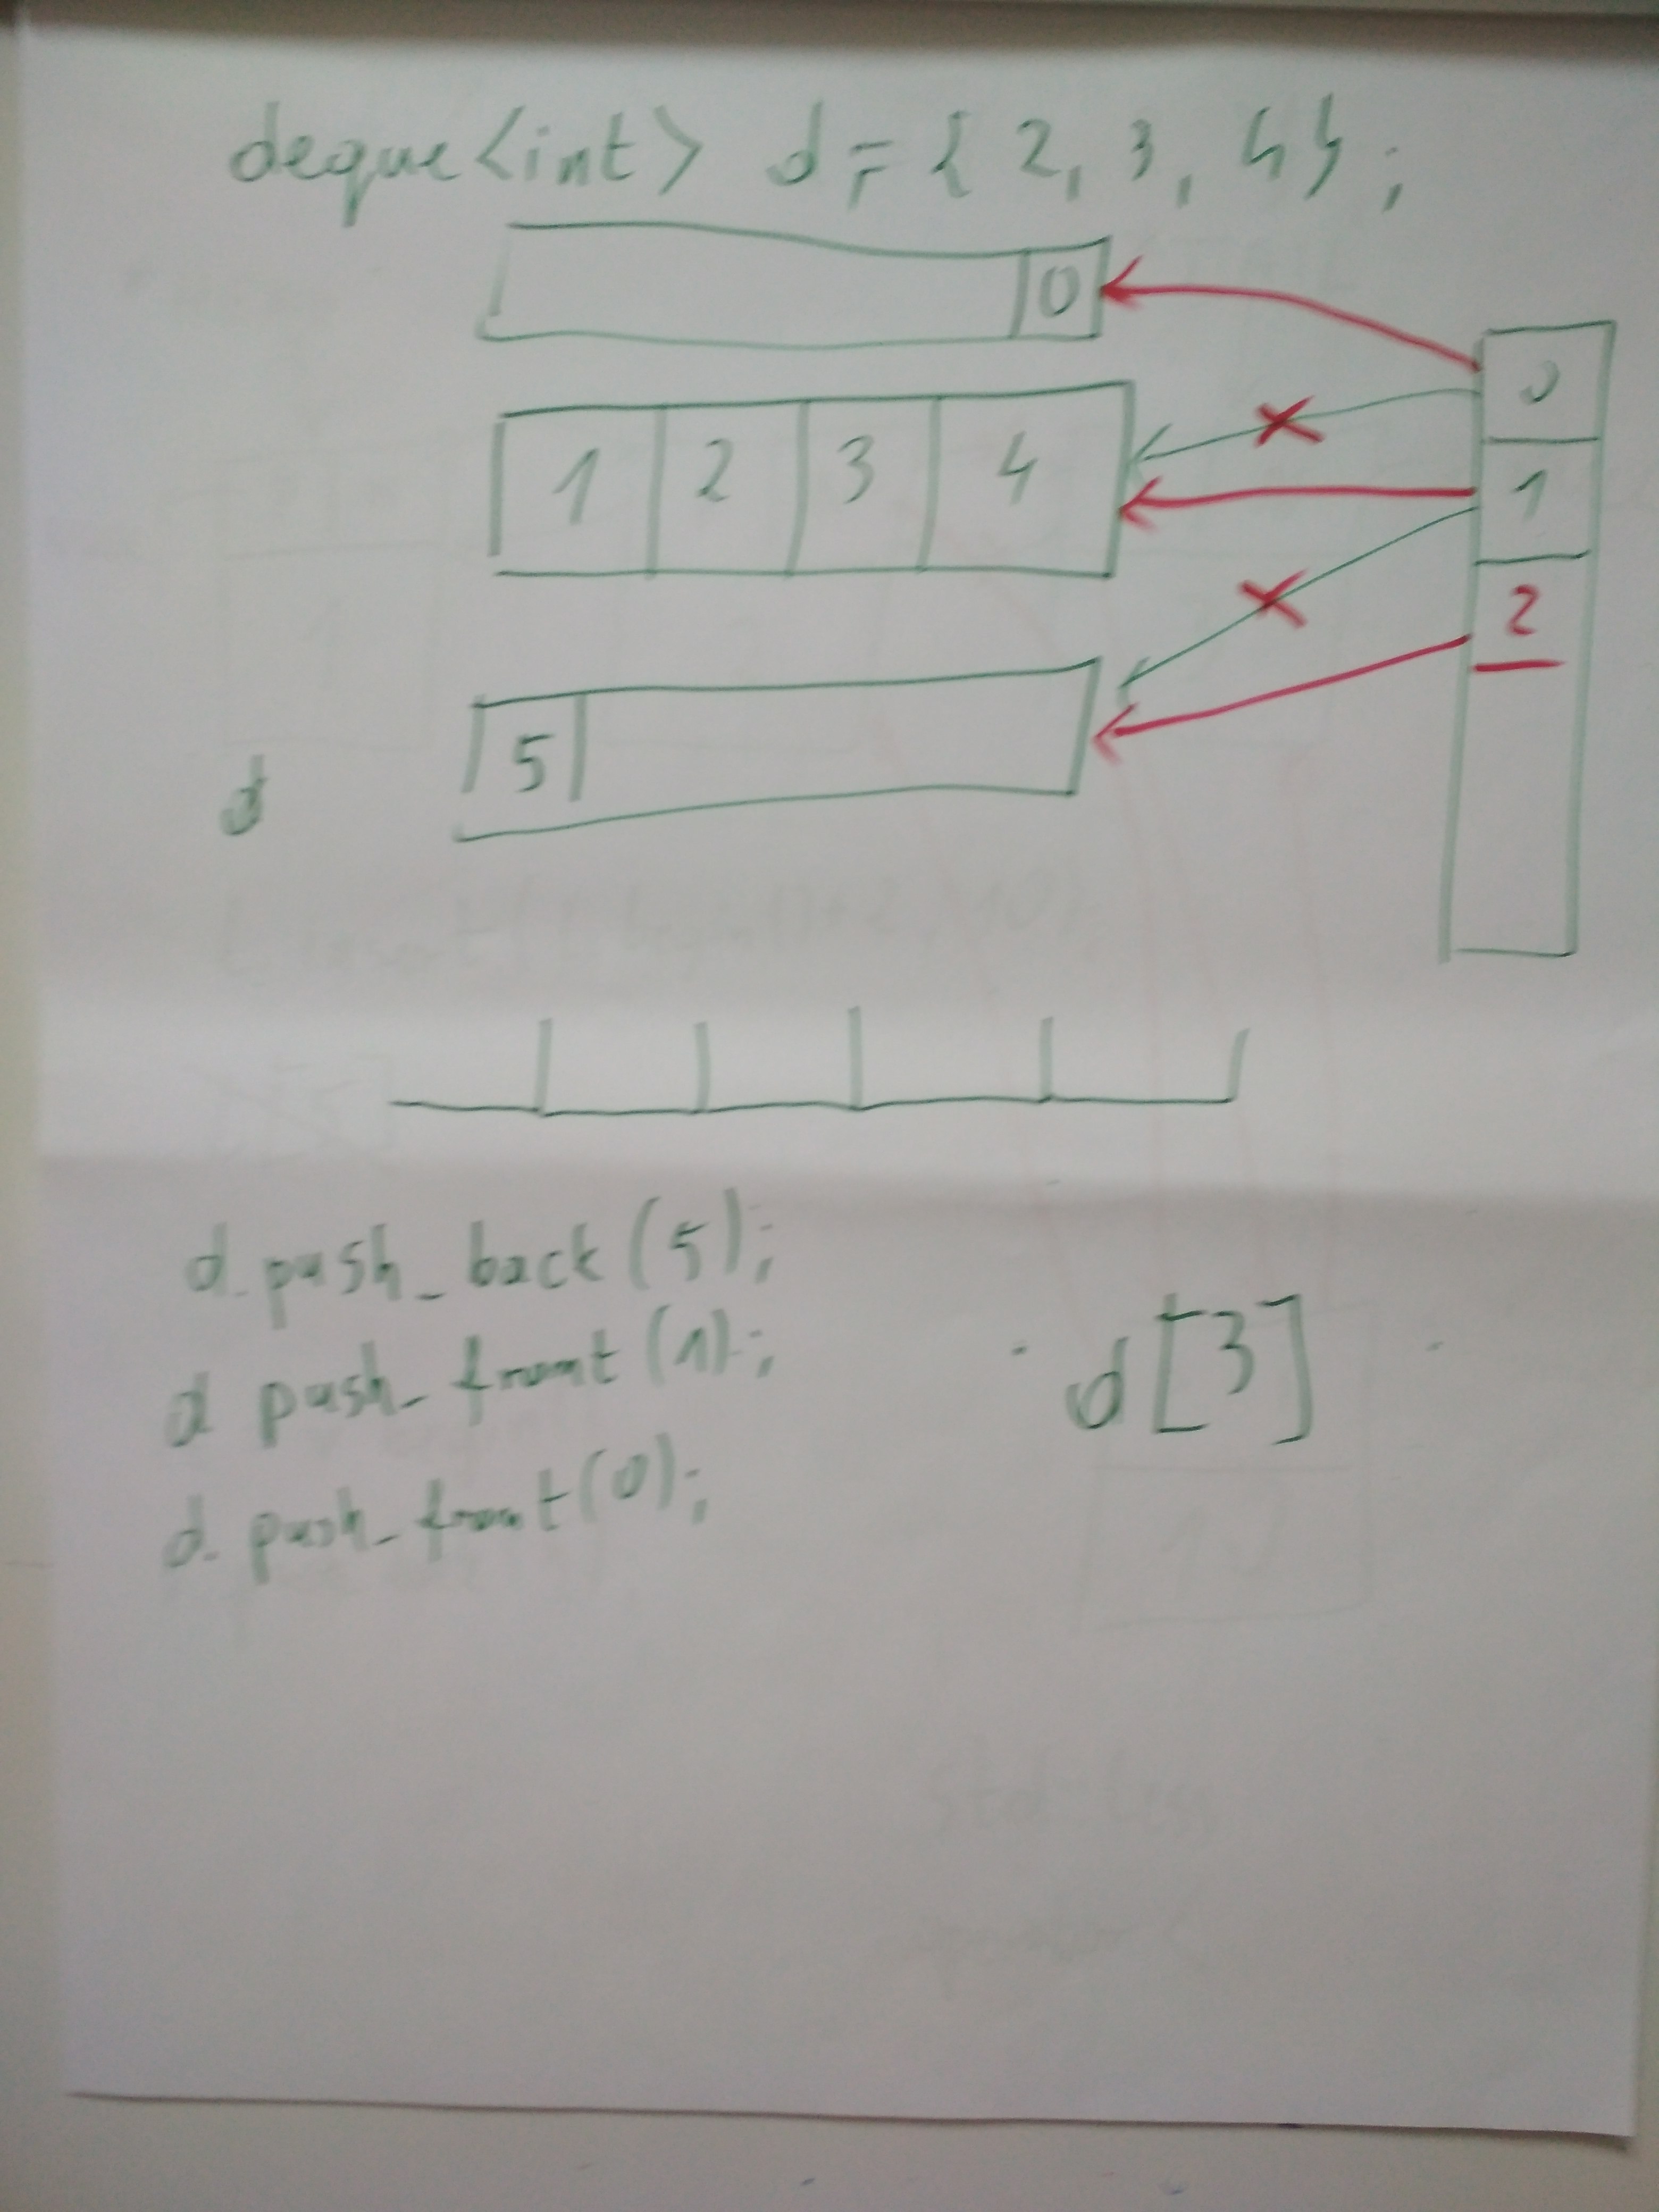 deque<int> d = { 2, 3, 4 };
0
0
1 2 3 4
1
2
5
d
d.push_back(5);
d push_front(1);
d[3]
d.push_front(0);